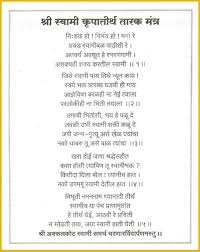 श्री स्वामी कृपातीर्थ तारक मंत्र
निःशंक हो ! निर्भय हो ! मना रे
प्रचंड स्वामीबळ पाठीशी रे ।
अतर्क्य अवधूत हे स्मरणगामी ।
अशक्यही शक्य करतील स्वामी ॥ १ ॥
जिथे स्वामी पाय तिथे न्यून काय ।
स्वये भक्त प्रारब्ध घडवी ही माय
आज्ञेविणा काळही ना नेई त्याला
परलोकीही ना भिती तयाला ॥ २ ॥
उगाची भितोसी, भय हे पळू दे
जवळी उभी स्वामी शक्ती कळू दे
जगी जन्म-मृत्यू असे खेळ ज्यांचा
नको घाबरू तू असे बाळ त्यांचा ॥ ३ ॥
खरा होई जागा श्रद्धेसहीत
कसा होशी त्याविण तू स्वामीभक्त ?
कितीदा दिला बोल ! त्यांनीच हात ।
नको डगमगू स्वामी देतील हात ॥ ४ ॥
विभूती नमननाम ध्यानादी तीर्थ
स्वामीच या पंच प्राणामृतात
हे तीर्थ घेई, आठवी रे प्रचिती
न सोडती तया, ज्या स्वामी हाती घेती ॥ ५ ॥
श्री अक्कलकोट स्वामी समर्थ चरणारविंदार्पणमस्तु ॥